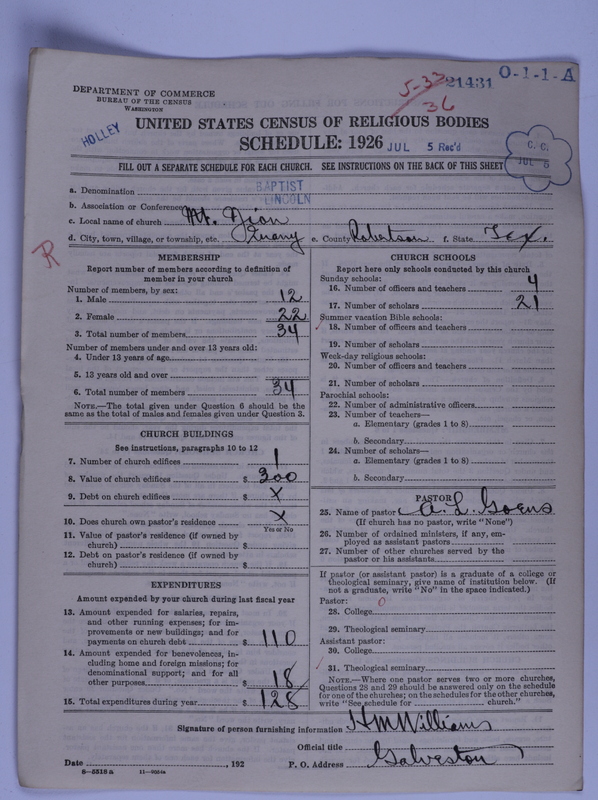 O-1-1-A
5-33 21431
36
DEPARTMENT OF COMMERCE
BUREAU OF THE CENSUS
WASHINGTON
HOLLEY
UNITED STATES CENSUS OF RELIGIOUS BODIES
SCHEDULE: 1926 JUL 5 Rec'd
C. C.
JUL 5
FILL OUT A SEPARATE SCHEDULE FOR EACH CHURCH. SEE INSTRUCTIONS ON THE BACK OF THIS SHEET
a. Denomination BAPTIST
b. Association or Conference LINCOLN
c. Local name of church Mt. Zion
d. City, town, village, or township, etc. e. County Robertson f. State Tex.
R
MEMBERSHIP
Report number of members according to definition of
member in your church
Number of members, by sex:
1. Male 12
2. Female 22
3. Total number of members 34
Number of members under and over 13 years old:
4. Under 13 years of age
5. 13 years old and over
6. Total number of members 34
NOTE.—The total given under Question 6 should be the
same as the total of males and females given under Question 3.
CHURCH BUILDINGS
See instructions, paragraphs 10 to 12
7. Number of church edifices 1
8. Value of church edifices $ 300
9. Debt on church edifices $ X
10. Does church own pastor's residence X
Yes or No
11. Value of pastor's residence (if owned by
church) $
12. Debt on pastor's residence (if owned by
church) $
EXPENDITURES
Amount expended by your church during last fiscal year
13. Amount expended for salaries, repairs,
and other running expenses; for im-
provements or new buildings; and for
payments on church debt $ 110
14. Amount expended for benevolences, in-
cluding home and foreign missions; for
denominational support; and for all
other purposes $ 18
15. Total expenditures during year $ 128
CHURCH SCHOOLS
Report here only schools conducted by this church
Sunday schools:
16. Number of officers and teachers 4
17. Number of scholars 21
Summer vacation Bible schools:
18. Number of officers and teachers
19. Number of scholars
Week-day religious schools:
20. Number of officers and teachers
21. Number of scholars
Parochial schools:
22. Number of administrative officers
23. Number of teachers—
a. Elementary (grades 1 to 8)
b. Secondary
24. Number of scholars—
a. Elementary (grades 1 to 8)
b. Secondary
PASTOR
25. Name of pastor A. L. Goens
(If church has no pastor, write "None")
26. Number of ordained ministers, if any, em-
ployed as assistant pastors
27. Number of other churches served by the
pastor or his assistants
If pastor (or assistant pastor) is a graduate of a college or
theological seminary, give name of institution below. (If
not a graduate, write "No" in the space indicated.)
Pastor: 0
28. College
29. Theological seminary
Assistant pastor:
30. College
31. Theological seminary
NOTE.—Where one pastor serves two or more churches,
Questions 28 and 29 should be answered only on the schedule
for one of the churches; on the schedules for the other churches,
write "See schedule for church."
Signature of person furnishing information H M Williams
Official title
Date , 192 P. O. Address Galveston
8—5518a 11—9054a